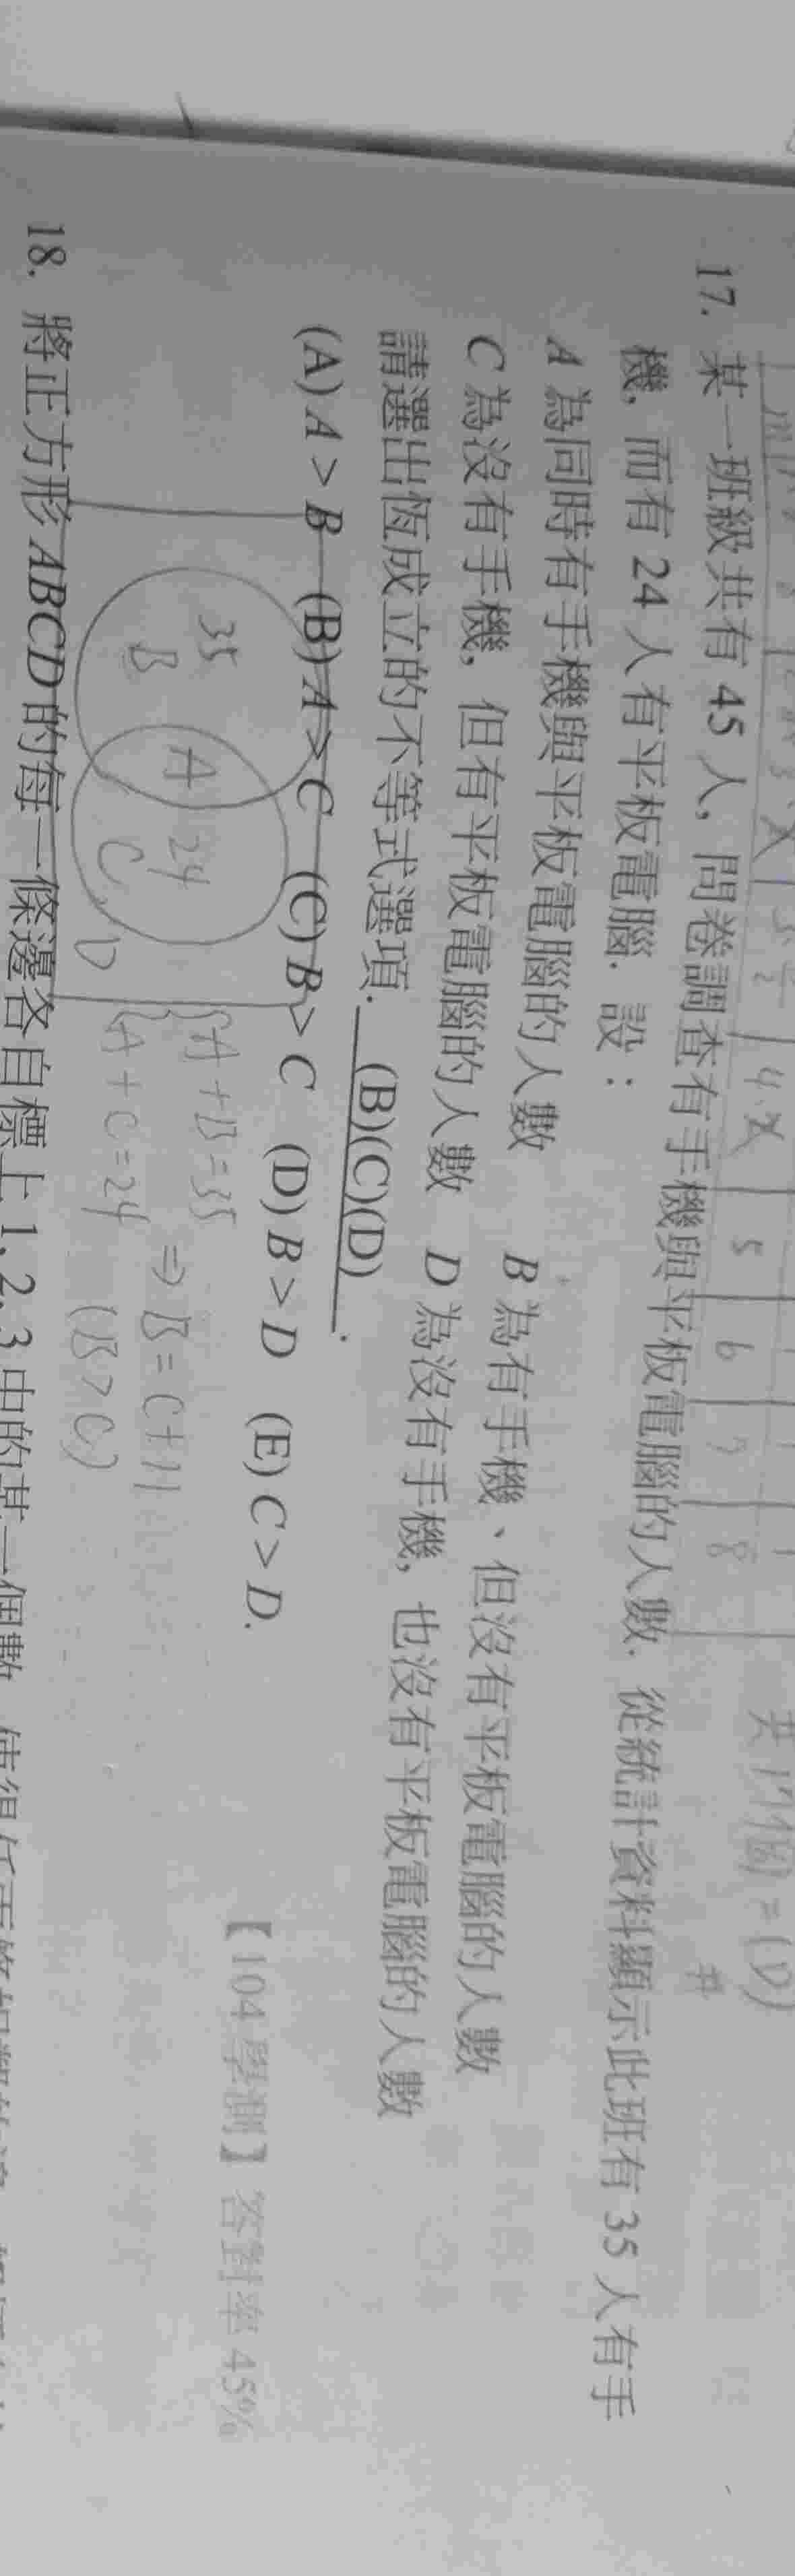 17. 某一班級共有 45 人, 問卷調查有手機與平板電腦的人數. 從統計資料顯示此班有 35 人有手
機, 而有 24 人有平板電腦. 設：
A 為同時有手機與平板電腦的人數 B 為有手機、但沒有平板電腦的人數
C 為沒有手機, 但有平板電腦的人數 D 為沒有手機, 也沒有平板電腦的人數
請選出恆成立的不等式選項. (B)(C)(D) .
(A) A > B (B) A > C (C) B > C (D) B > D (E) C > D.
【104 學測】答對率 45%
35 B A 24 C D
A + B = 35
A + C = 24
⇒ B = C + 11
(B > C)
18. 將正方形 ABCD 的每一條邊各自標上 1, 2, 3 中的某一個數, 使得任